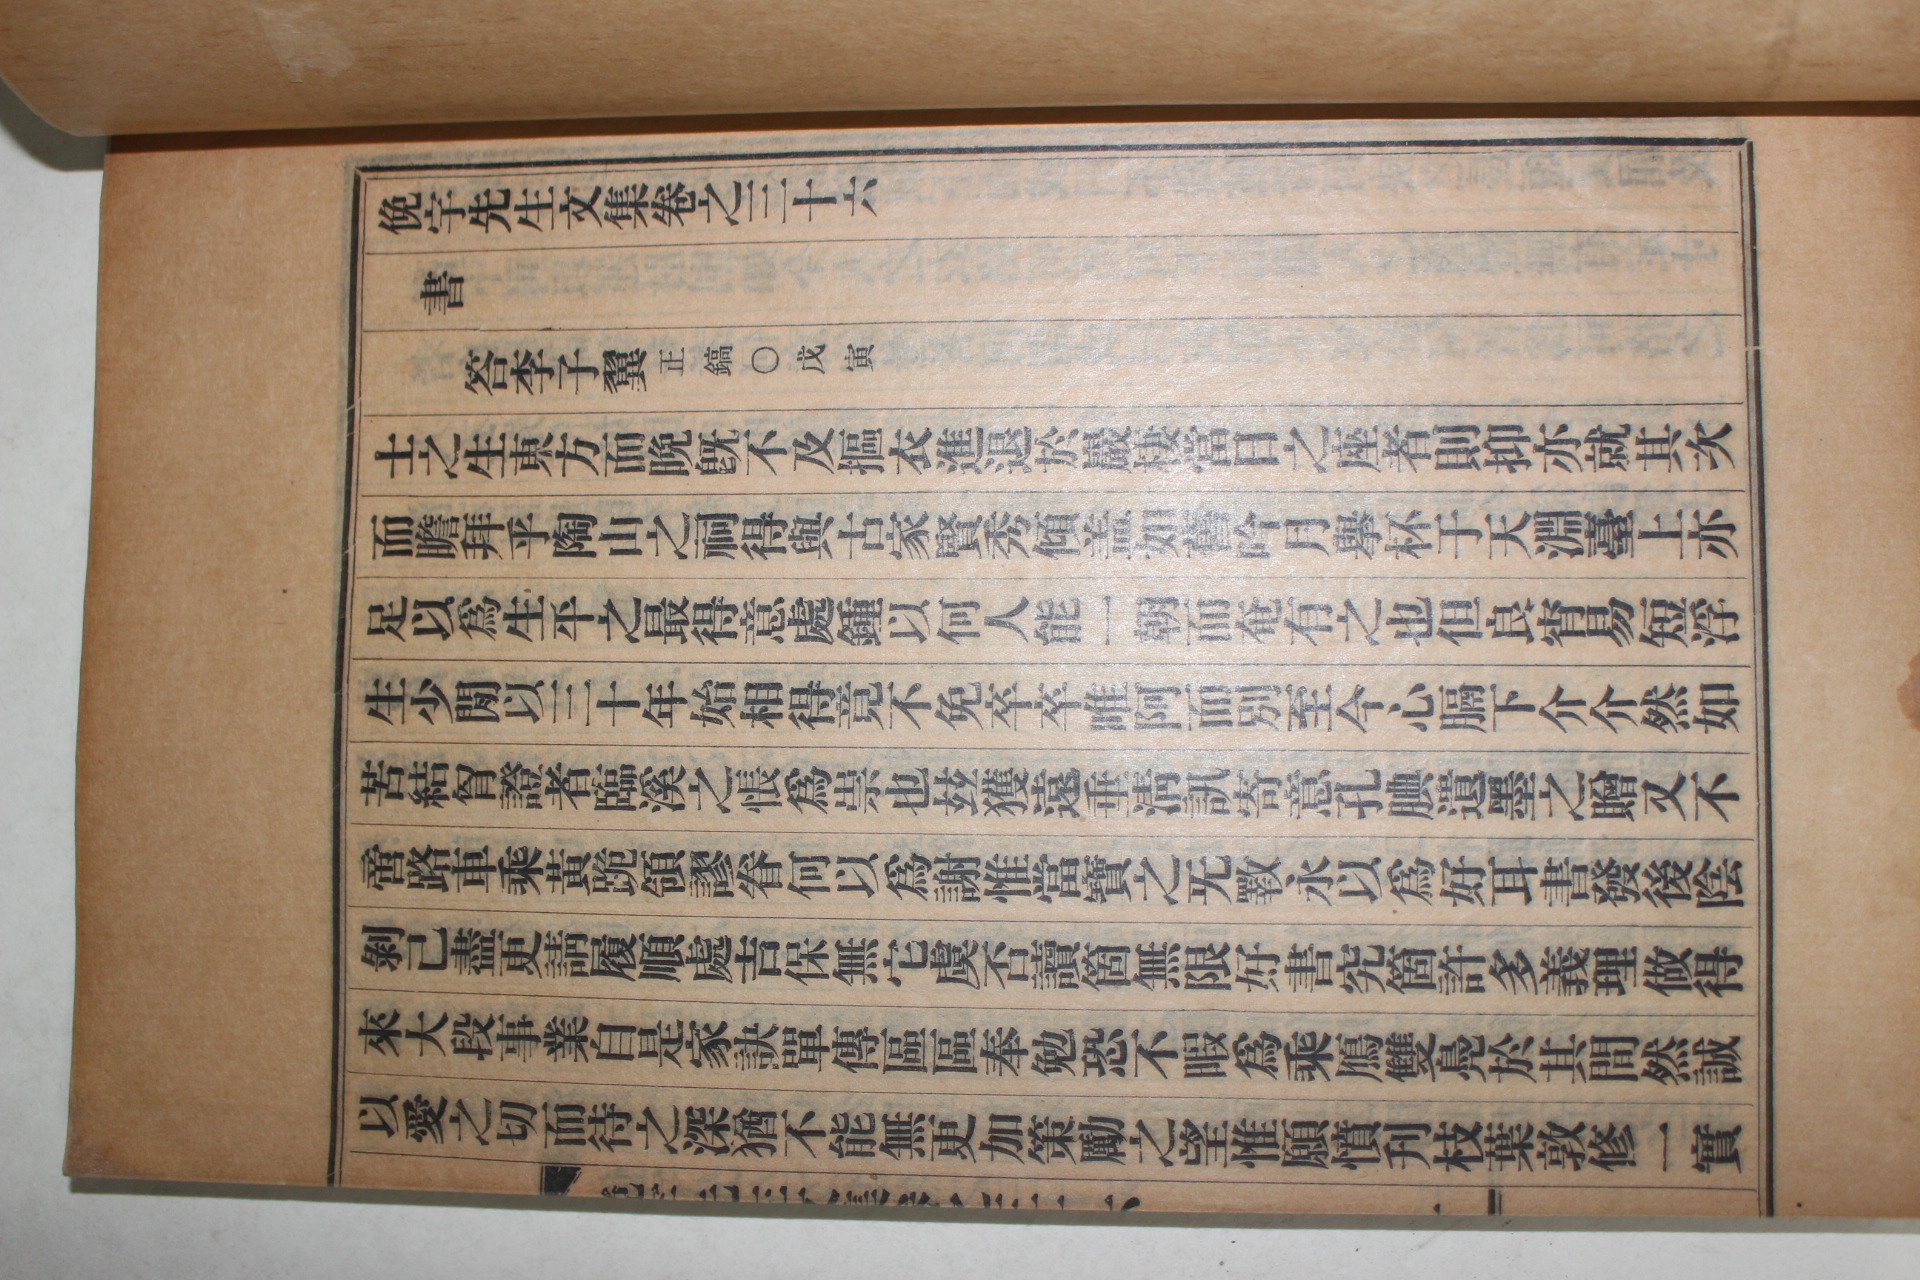 俛宇先生文集卷之三十六
書
答李子翼正鎬○戊寅
士之生東方而晩旣不及摳衣進退於巖棲當日之座者則抑亦就其次
而瞻拜乎陶山之祠得與古家賢秀傾蓋如舊吟月擧杯于天淵臺上亦
足以爲生平之最得意處鍾以何人能一朝而奄有之也但良宵易短浮
生少閒以三十年始相得竟不免卒卒唯阿而別至今心膈下介介然如
苦結胷證者臨溪之悵爲祟也玆獲遠垂淸訊寄意孔腆遺墨之贈又不
啻路車乘黃跪領謬眷何以爲謝惟當寶之无斁永以爲好耳書發後陰
剝已盡更謂履順處吉保無它虞否讀箇無限好書究箇許多義理做得
來大段事業自是家訣單傳區區奉勉恐不暇爲乘鴈雙鳧於其間然誠
以愛之切而待之深猶不能無更加策勵之望惟願憤刋枝葉敦修一實